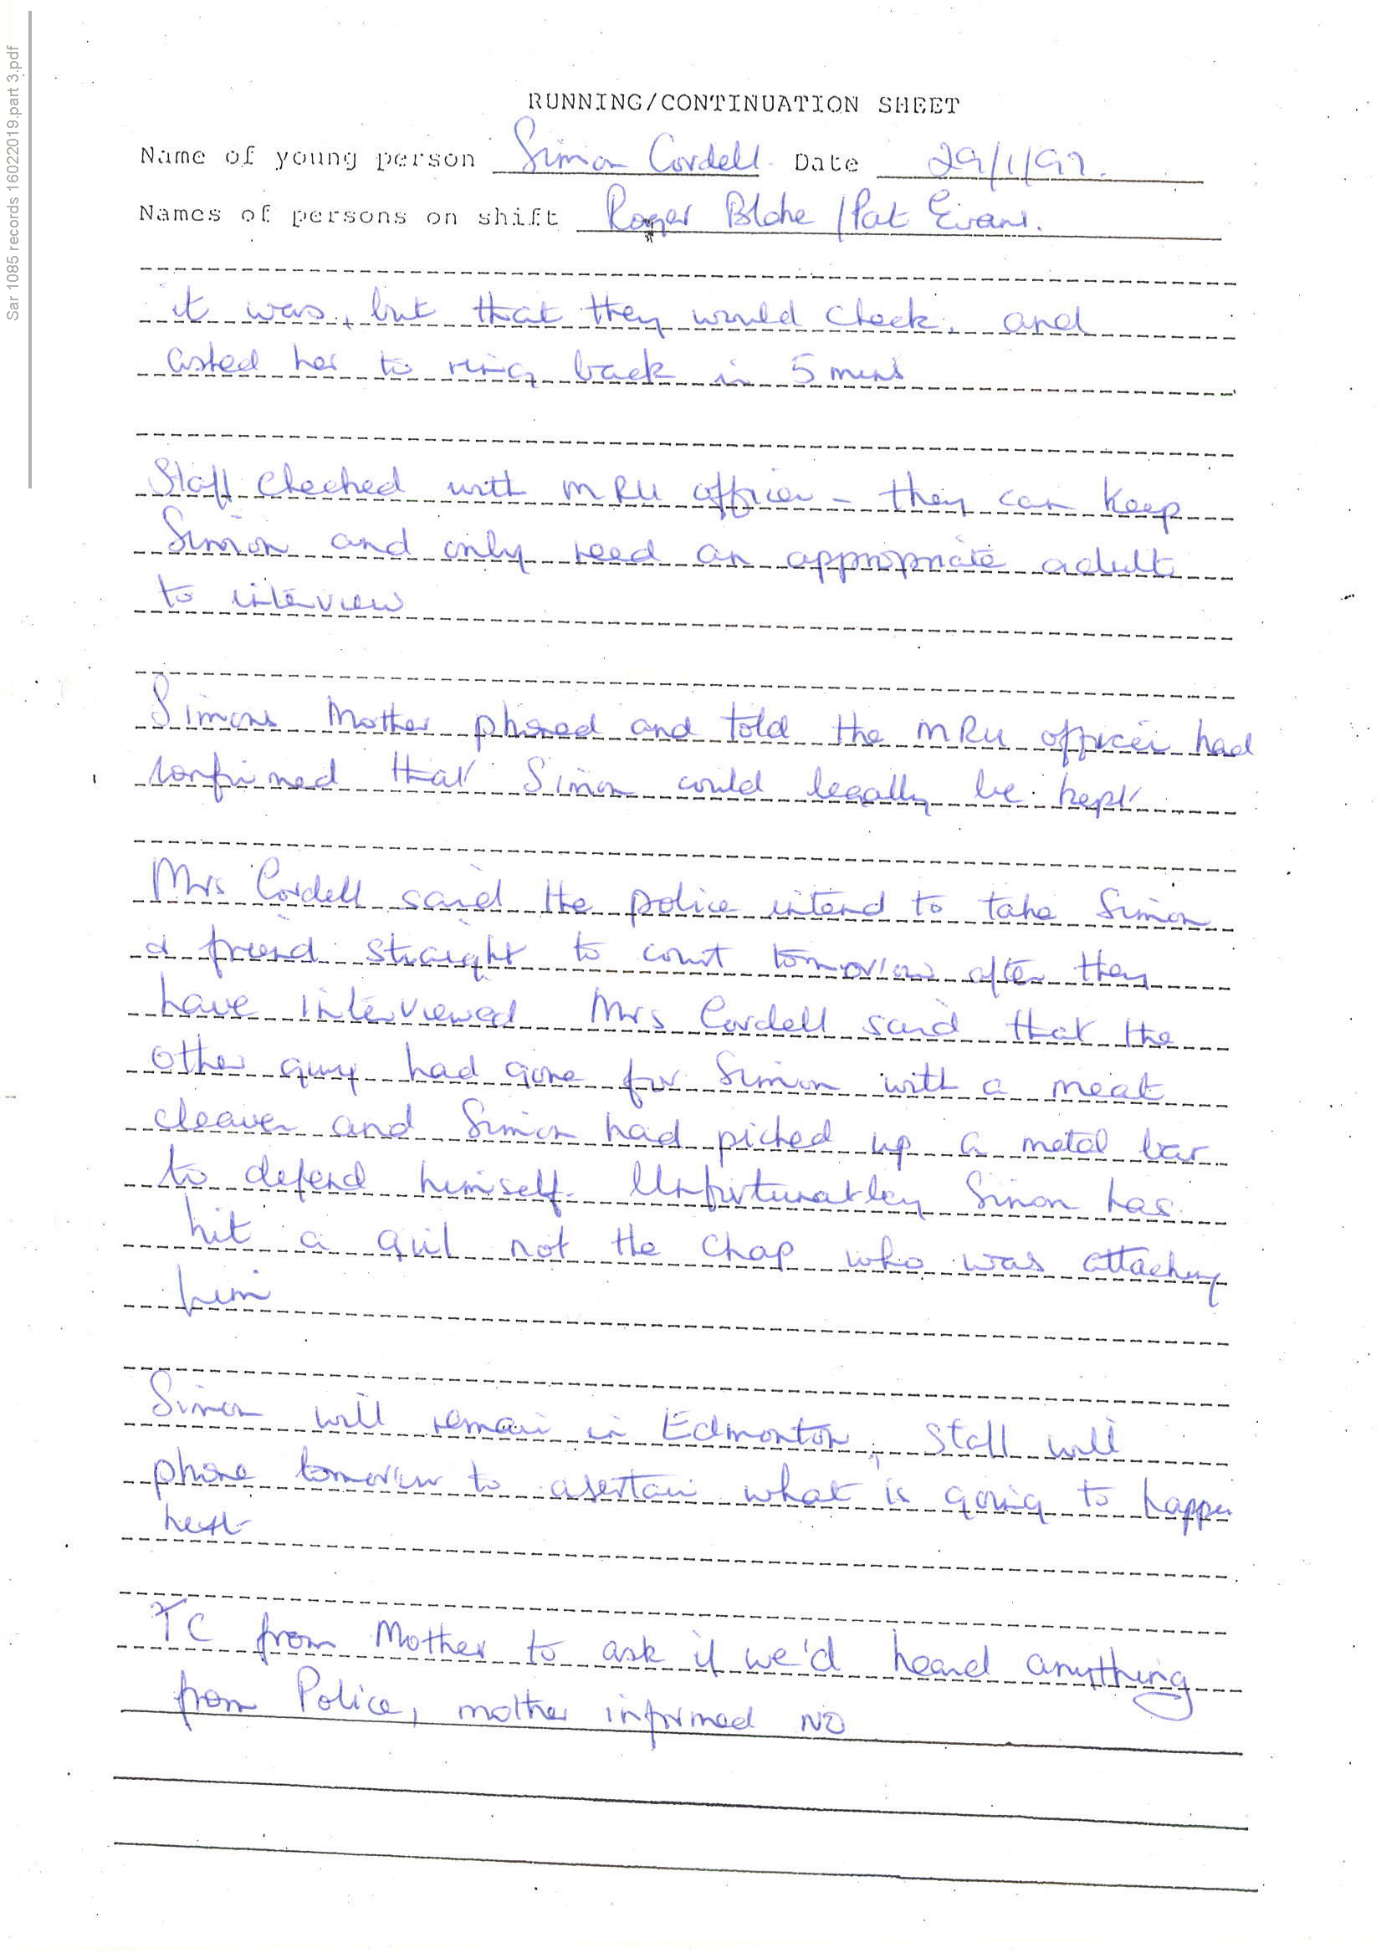 Sar 1085 records 16022019.part 3.pdf
RUNNING/CONTINUATION SHEET
Name of young person Simon Cordell. Date 29/1/97.
Names of persons on shift Roger Blake / Pat Evans.
it was, but that they would check. and
asked her to ring back in 5 mins
Staff checked with MRU officer - they can keep
Simon and only need an appropriate adult
to interview
Simons Mother phoned and told the MRU officer had
confirmed that Simon could legally be kept
Mrs Cordell said the police intend to take Simon
& friend straight to court tomorrow after they
have interviewed Mrs Cordell said that the
other guy had gone for Simon with a meat
cleaver and Simon had picked up a metal bar
to defend himself. Unfortunatley Simon has
hit a girl not the chap who was attacking
him
Simon will remain in Edmonton, staff will
phone tomorrow to asertain what is going to happen
next
TC from Mother to ask if we'd heard anything
from Police, mother informed NO